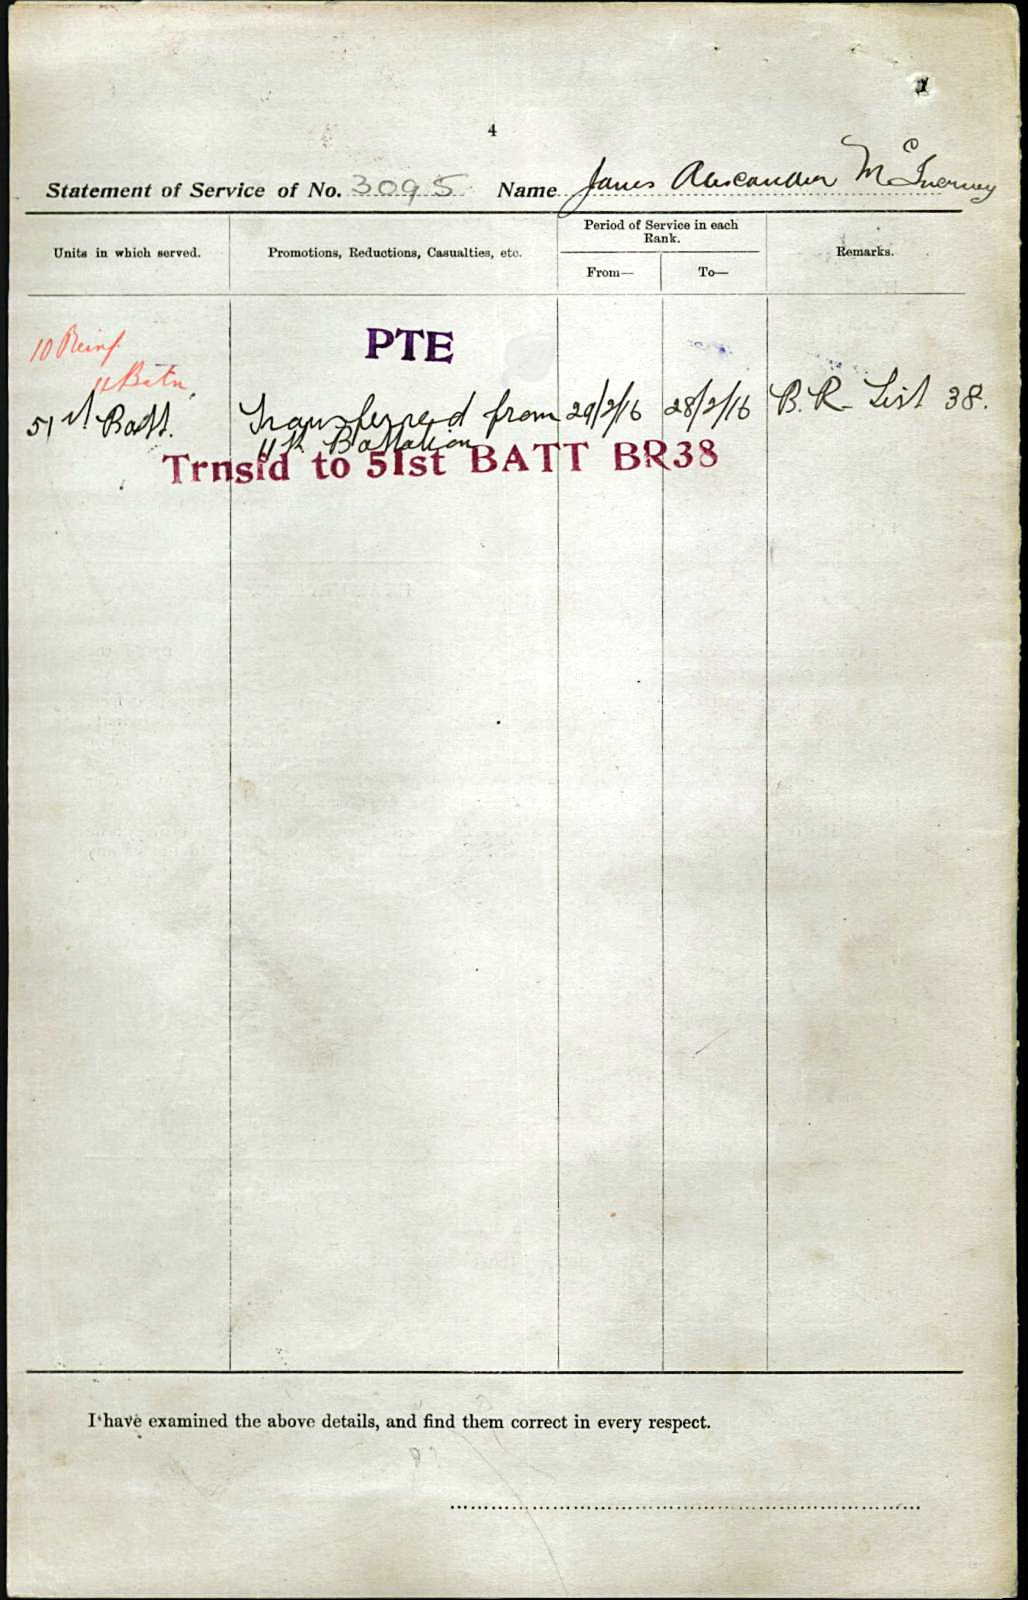 4
Statement of Service of No. 3095 Name James Alexander McInerney
Units in which served. Promotions, Reductions, Casualties, etc. Period of Service in each Rank. From— To— Remarks.
10 Reinf PTE
11 Batn
51st Batt. Transferred from 29/2/16 28/2/16 B.R. List 38.
11th Battalion
Trnsfd to 51st BATT BR38
I have examined the above details, and find them correct in every respect.